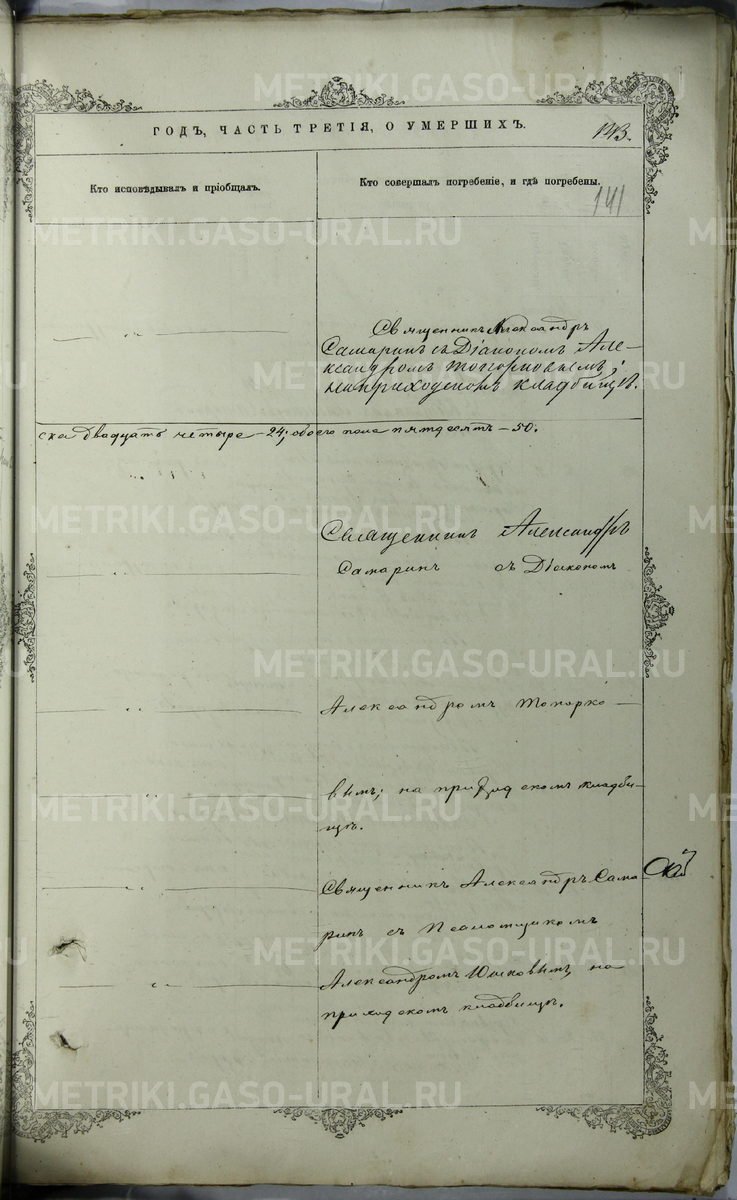 ГОДЪ, ЧАСТЬ ТРЕТІЯ, О УМЕРШИХЪ.
143.
Кто исповѣдывалъ и пріобщалъ.
Кто совершалъ погребеніе, и гдѣ погребены.
141
METRIKI.GASO-URAL.RU
Священникъ Александръ
Самаринъ съ Діакономъ Але-
ксандромъ Топорковымъ;
на приходскомъ кладбищѣ.
ска двадцать четыре - 24; обоего пола пятдесятъ - 50.
Священникъ Александръ
Самаринъ съ Діакономъ
Александромъ Топорко-
вымъ; на приходскомъ кладби-
щѣ.
Священникъ Александръ Сама-
ринъ съ Псаломщикомъ
Александромъ на
приходскомъ кладбищѣ.